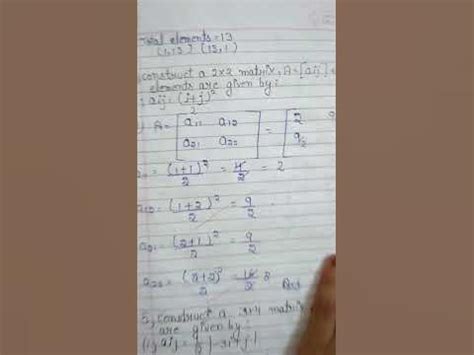 Total elements = 13
(1,13) (13,1)
construct a 2x2 matrix, A=[aij]
elements are given by:
aij = (i+j)²
2
A = [ a11 a12 = [ 2 9
a21 a22 ] 9/2
(1+1)²/2 = 4/2 = 2
a12 = (1+2)²/2 = 9/2
a21 = (2+1)²/2 = 9/2
a22 = (2+2)²/2 = 16/2 8 Ans
5, construct a 3x4 matrix
are given by:
(i, aij =